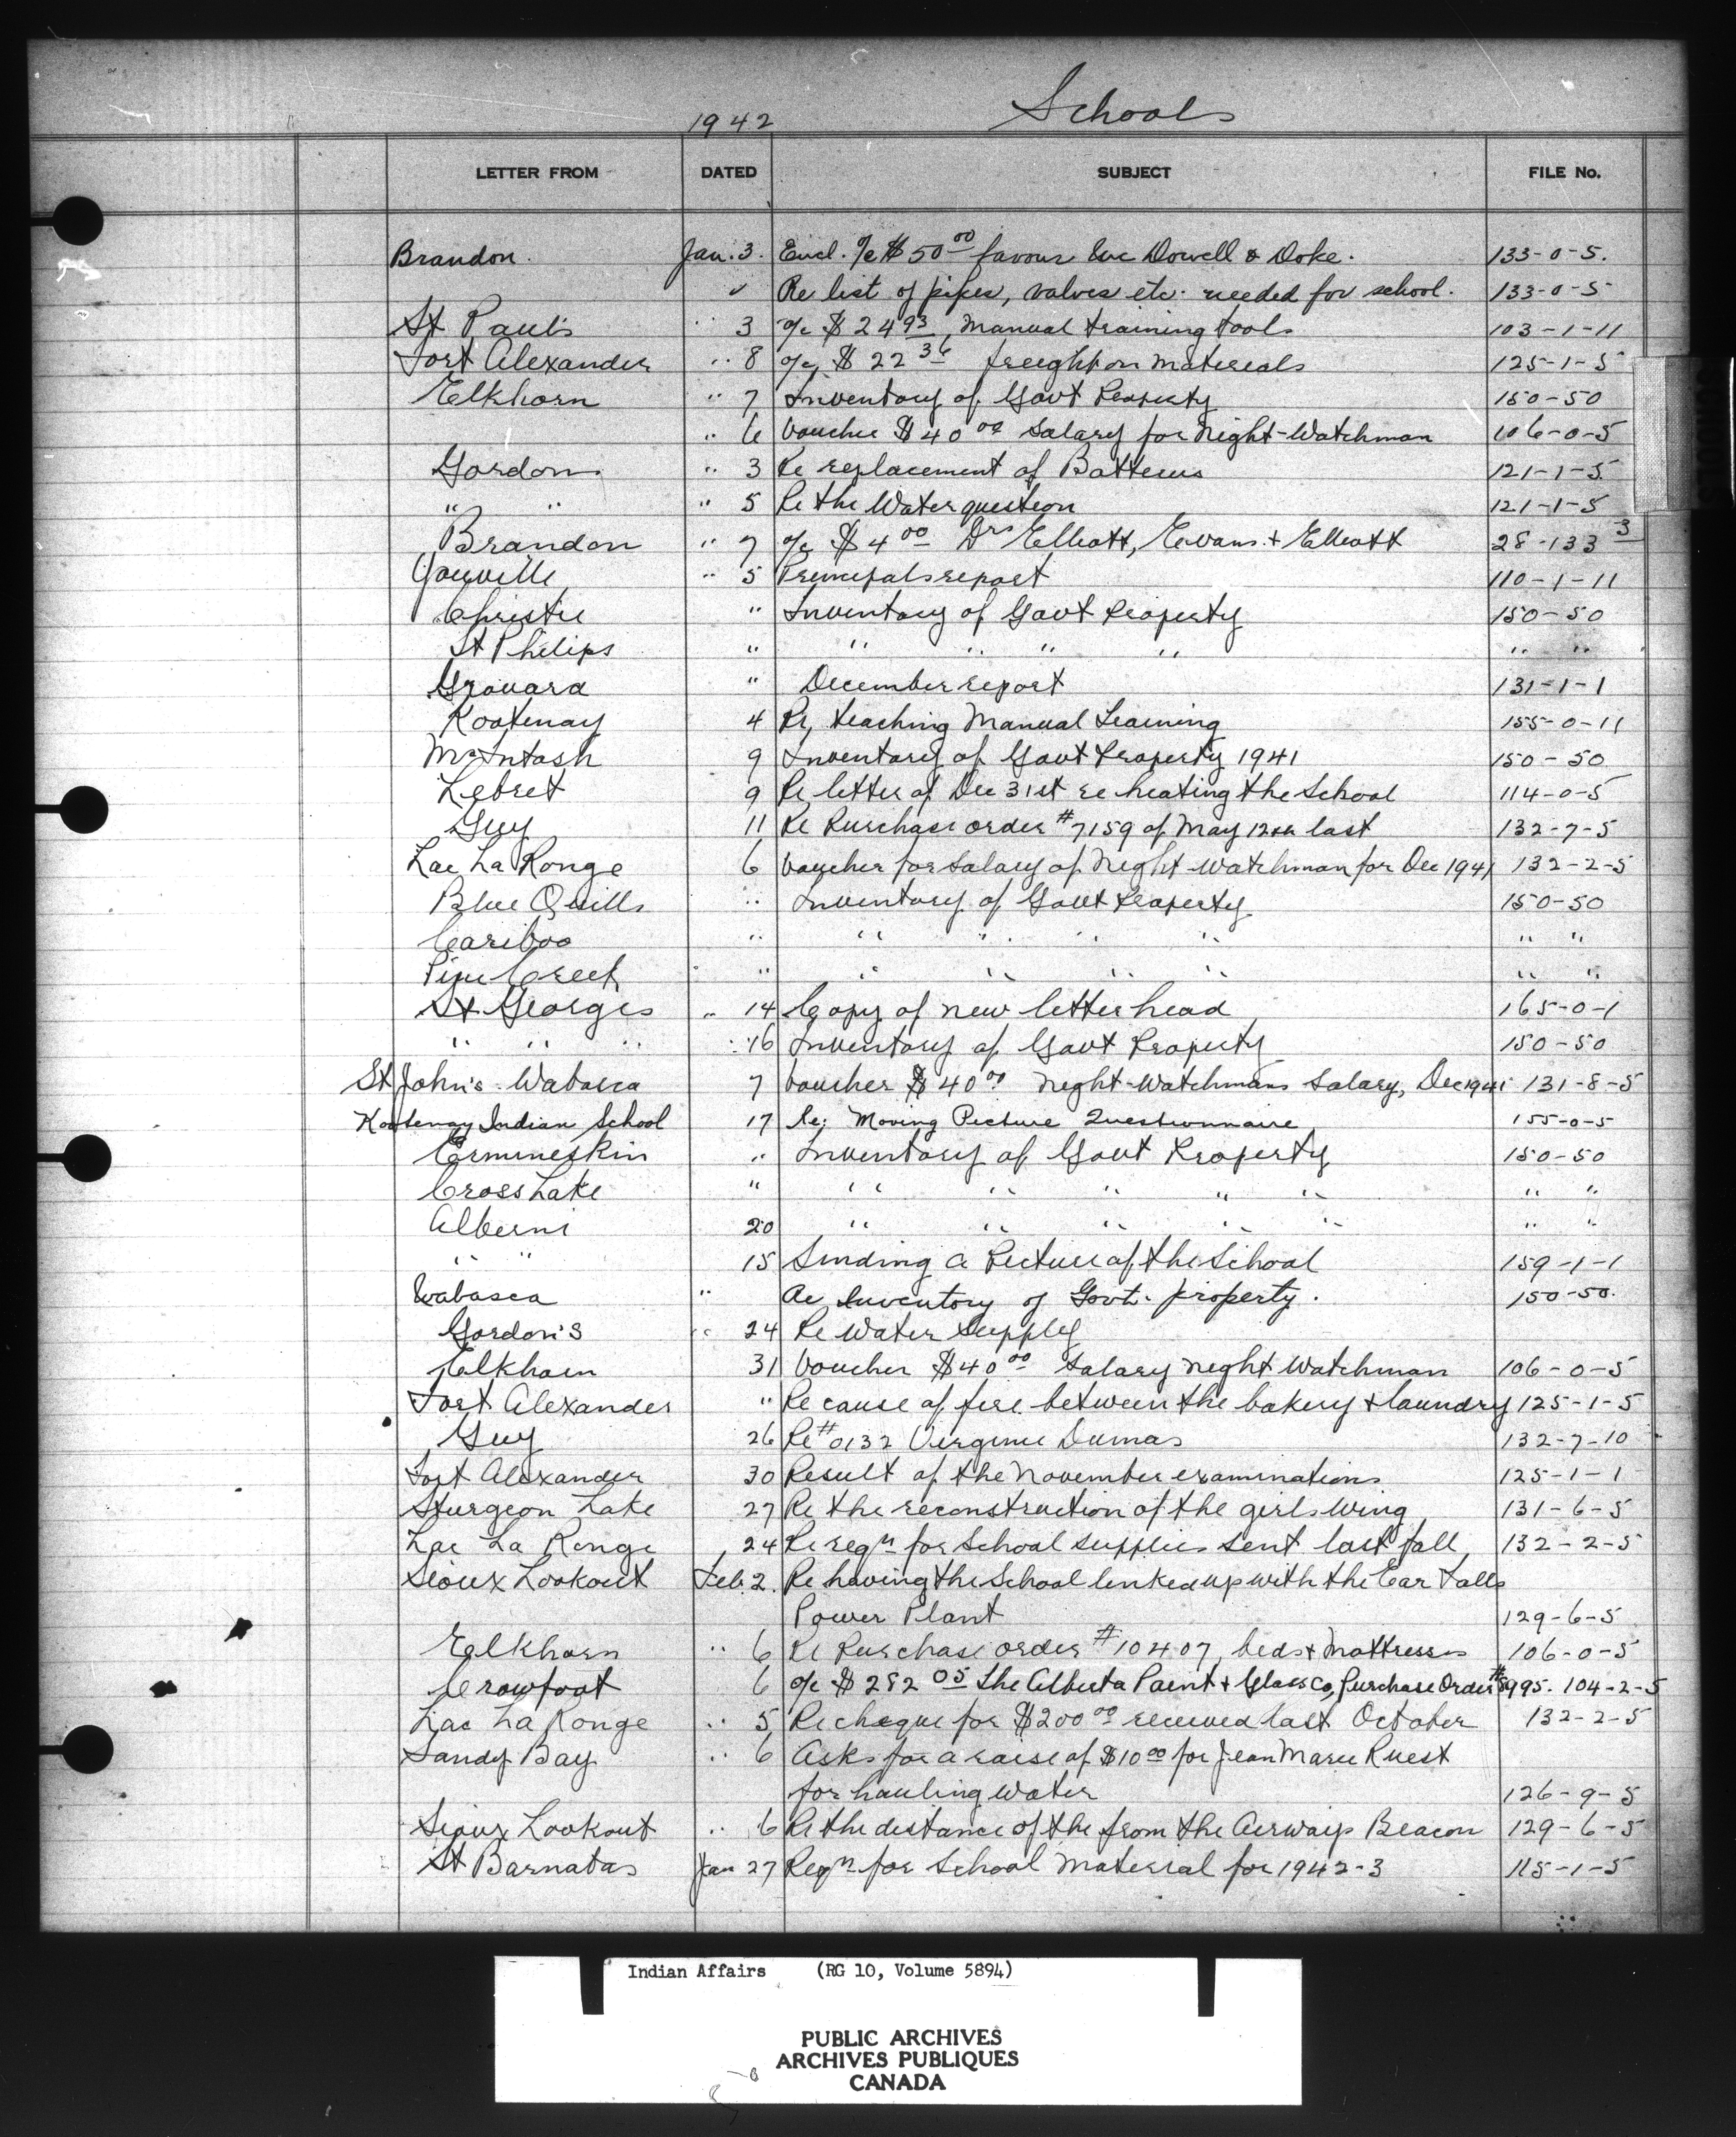 1942 Schools
LETTER FROM DATED SUBJECT FILE No.
Brandon. Jan. 3. Encl. o/c $50 00 favour Dowell & Doke. 133-0-5.
" Re list of pipes, valves etc. needed for school. 133-0-5
St Paul's " 3 o/c $ 24 93 Manual training tools 103-1-11
Fort Alexander " 8 o/c $ 22 36 freight on materials 125-1-5
Elkhorn " 7 Inventory of Govt Property 150-50
" 6 Voucher $40 00 Salary for Night-Watchman 106-0-5
Gordons " 3 Re replacement of Batteries 121-1-5
" " " 5 Re the Water question 121-1-5
Brandon " 7 o/c $4 00 Drs Elliott, Evans + Elliott 28-133 3
Youville " 5 Principals report 110-1-11
Christie " Inventory of Govt Property 150-50
St Philips " " " " " " "
Grouard " December report 131-1-1
Kootenay 4 Re, teaching Manual Training 155-0-11
McIntosh 9 Inventory of Govt Property 1941 150-50
Lebret 9 Re letter of Dec 31st re heating the School 114-0-5
Guy 11 Re Purchase order #7159 of May 12th last 132-7-5
Lac La Ronge 6 Voucher for Salary of Night Watchman for Dec 1941 132-2-5
Blue Quills " Inventory of Govt Property 150-50
Cariboo " " " " " " "
Pine Creek " " " " " " "
St Georges " 14 Copy of new letter head 165-0-1
" " " " 16 Inventory of Govt Property 150-50
St John's Wabasca 7 Voucher $40 00 Night-Watchmans Salary, Dec 1941 131-8-5
Kootenay Indian School 17 Re: Moving Picture Questionnaire 155-0-5
Ermineskin " Inventory of Govt Property 150-50
Cross Lake " " " " " " " "
Alberni 20 " " " " " " "
" " 15 Sending a Picture of the School 159-1-1
Wabasca " Re Inventory of Govt. property. 150-50.
Gordon's " 24 Re Water Supply
Elkhorn 31 Voucher $40 00 Salary Night Watchman 106-0-5
Fort Alexander " Re cause of fire between the bakery + laundry 125-1-5
Guy 26 Re #0132 Virginie Dumas 132-7-10
Fort Alexander 30 Result of the November examinations 125-1-1
Sturgeon Lake 27 Re the reconstruction of the girls Wing 131-6-5
Lac La Ronge 24 Re reqn for School supplies sent last fall 132-2-5
Sioux Lookout Feb. 2. Re having the School linked up with the Ear Falls
Power Plant 129-6-5
Elkhorn " 6 Re Purchase order #10407, beds + Mattresses 106-0-5
Crowfoot 6 o/c $282 05 The Alberta Paint + Glass Co, Purchase Order #8995. 104-2-5
Lac La Ronge " 5 Re cheque for $200 00 received last October 132-2-5
Sandy Bay " 6 Asks for a raise of $10 00 for Jean Marie Ruest
for hauling water 126-9-5
Sioux Lookout " 6 Re the distance of the from the Airways Beacon 129-6-5
St Barnabas Jan 27 Reqn for School Material for 1942-3 115-1-5
Indian Affairs (RG 10, Volume 5894)
PUBLIC ARCHIVES
ARCHIVES PUBLIQUES
CANADA